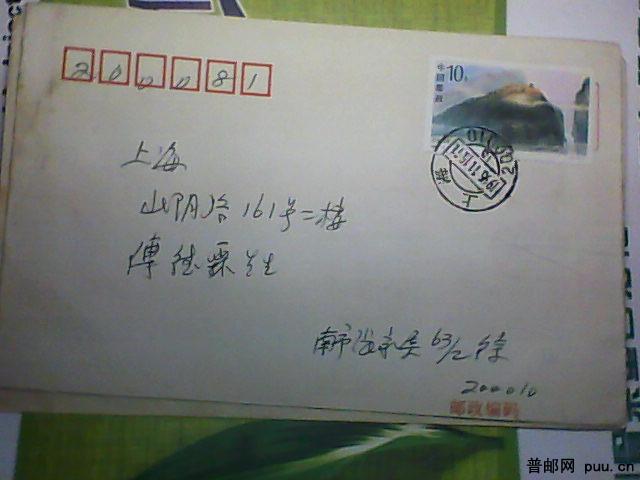 200081
中国邮政
10分
上海
上海
山阴路161号二楼
傅德霖先生
63/2 徐
200010
邮政编码
普邮网 puu.cn